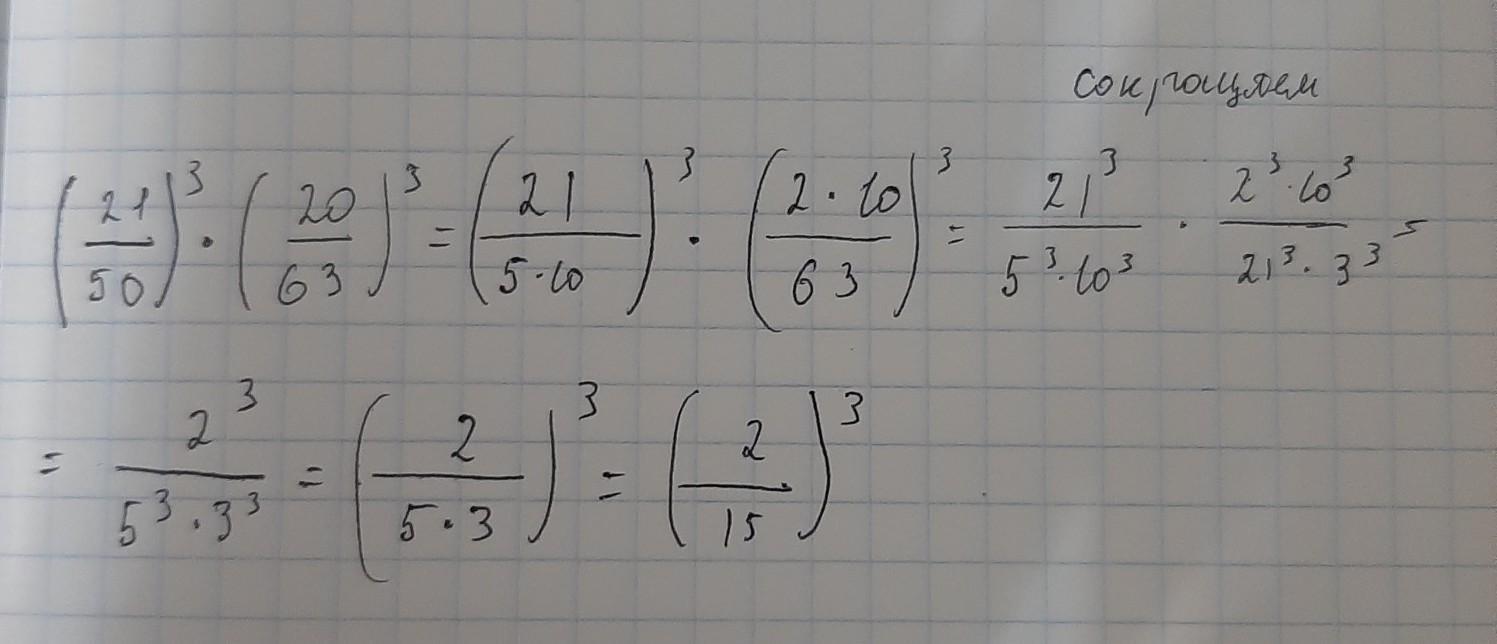 сокращяем
(21/50)³ · (20/63)³ = (21/(5·10))³ · ((2·10)/63)³ = 21³/(5³·10³) · (2³·10³)/(21³·3³) =
= 2³/(5³·3³) = (2/(5·3))³ = (2/15)³